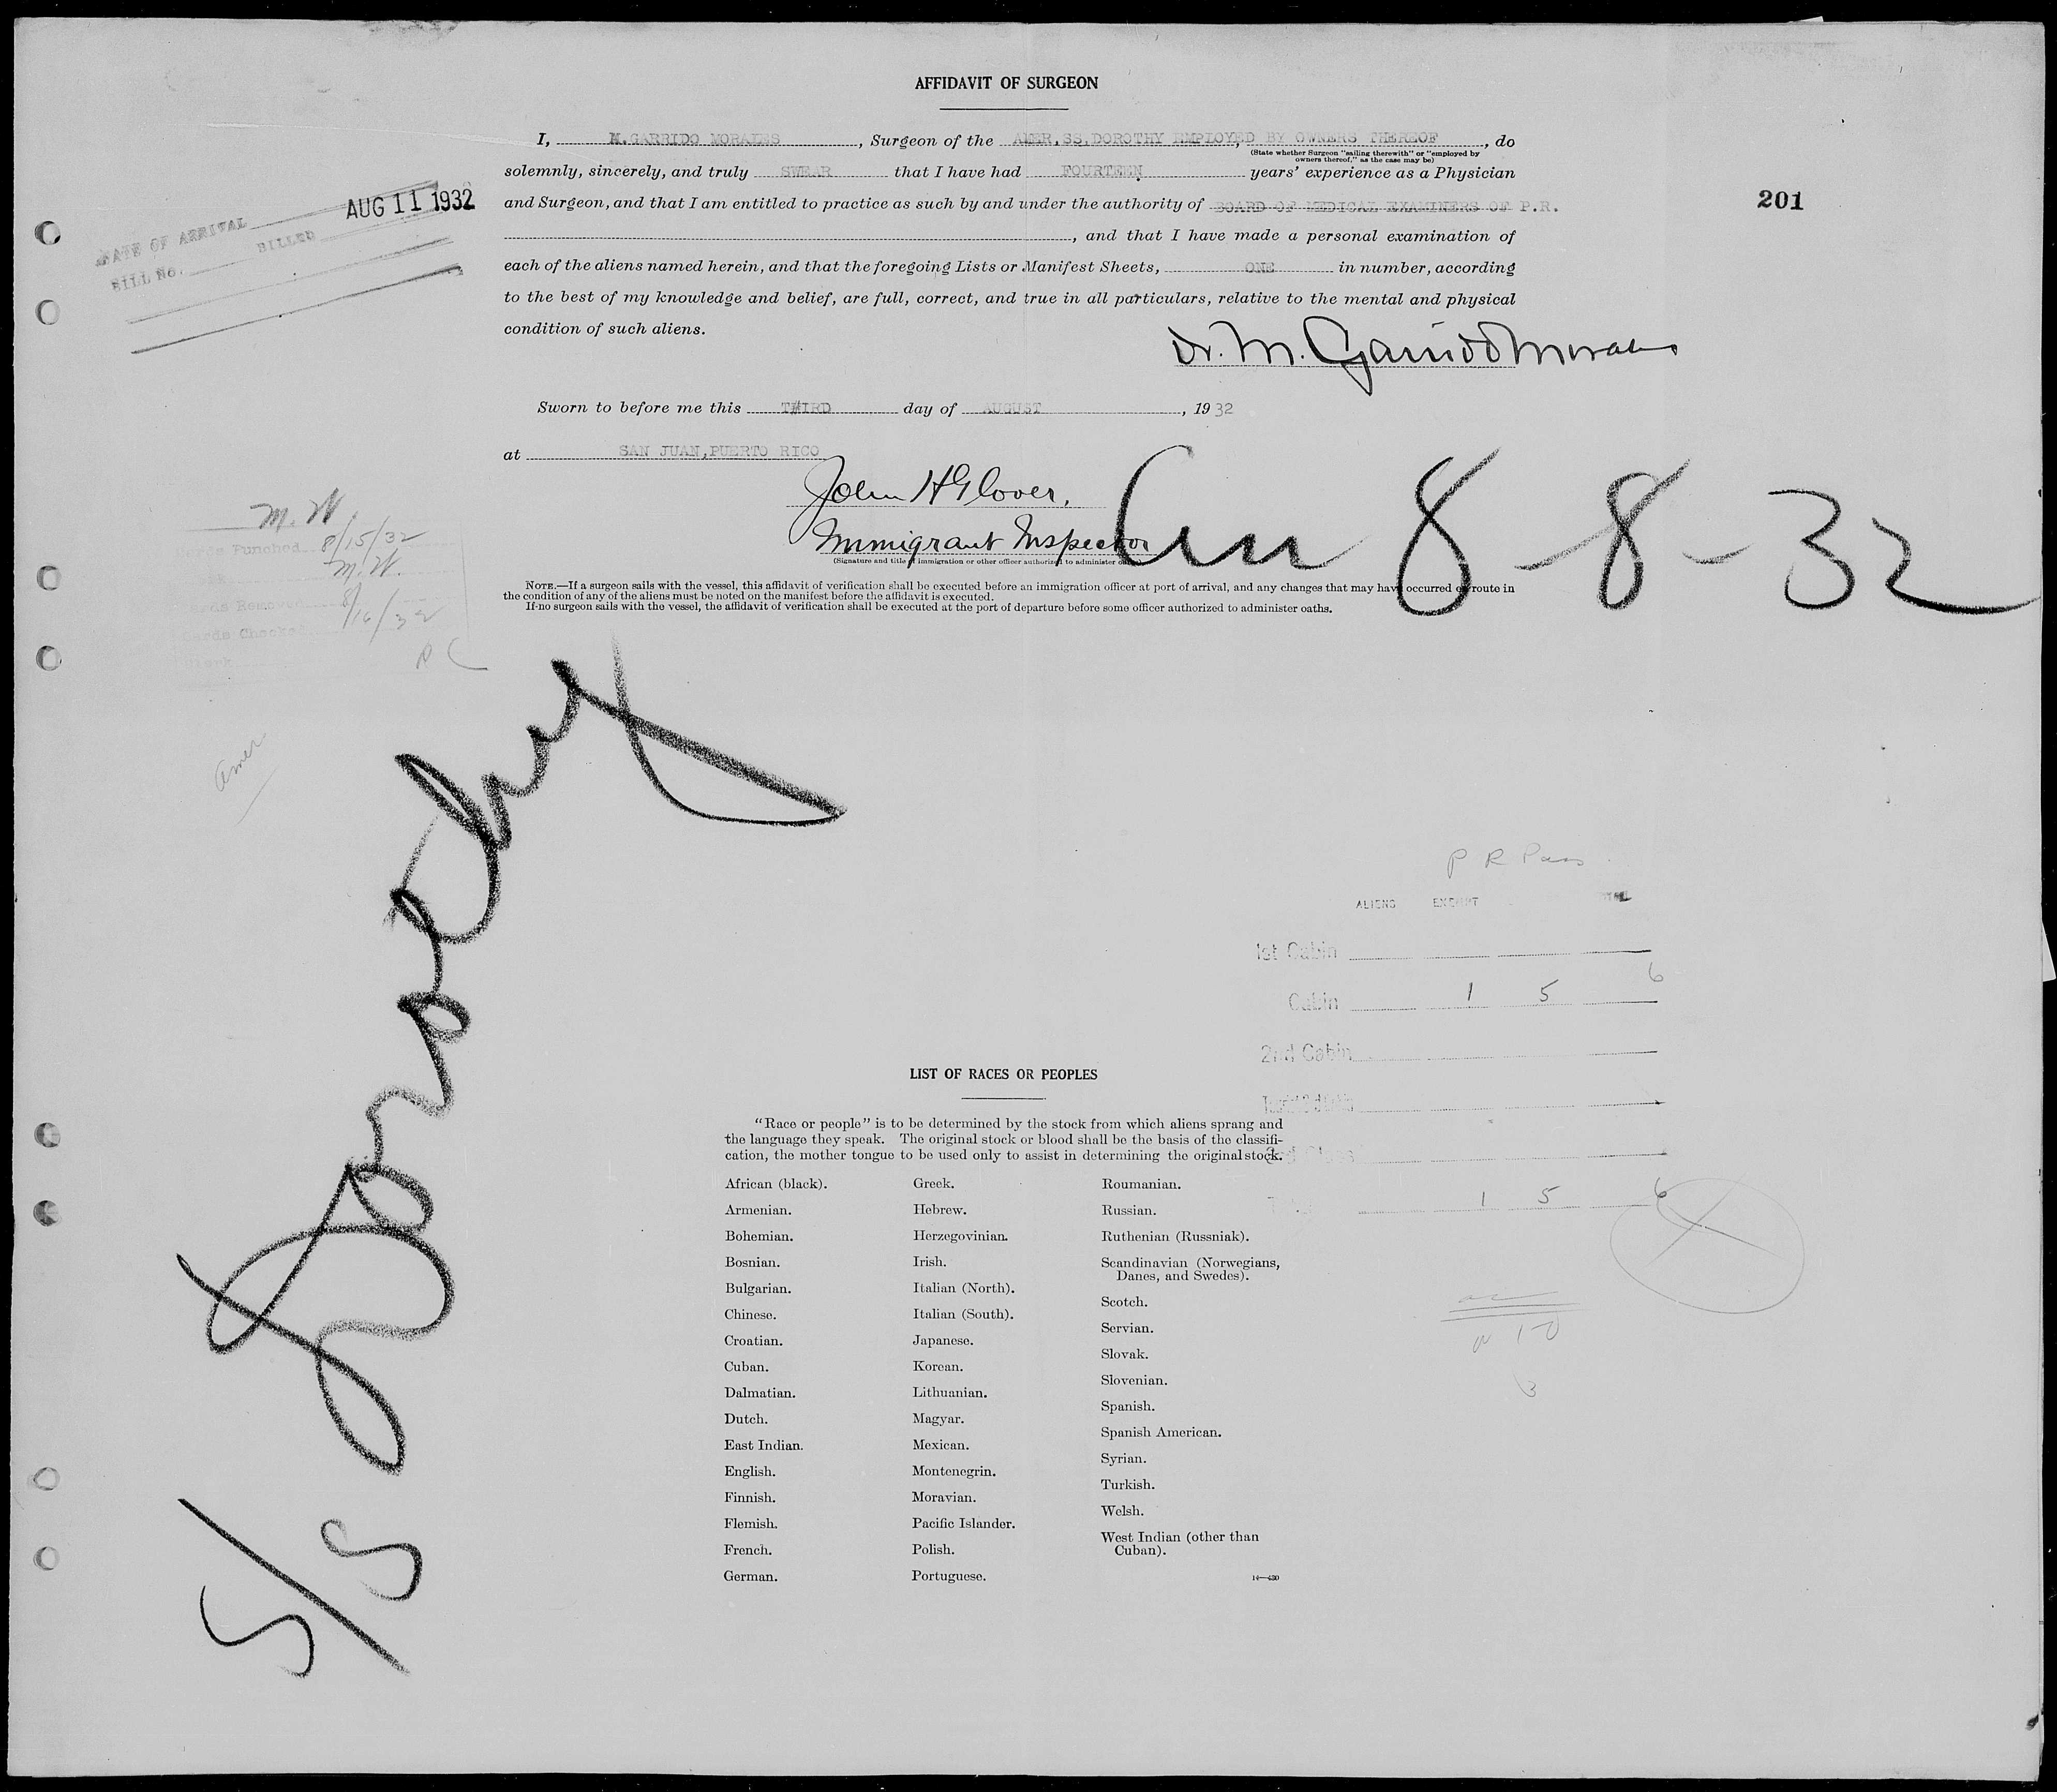 AFFIDAVIT OF SURGEON
I, M. GARRIDO MORALES, Surgeon of the AMER. SS. DOROTHY EMPLOYED BY OWNERS THEREOF, do
(State whether Surgeon "sailing therewith" or "employed by
owners thereof," as the case may be)
solemnly, sincerely, and truly SWEAR that I have had FOURTEEN years' experience as a Physician
and Surgeon, and that I am entitled to practice as such by and under the authority of BOARD OF MEDICAL EXAMINERS OF P.R.
, and that I have made a personal examination of
each of the aliens named herein, and that the foregoing Lists or Manifest Sheets, ONE in number, according
to the best of my knowledge and belief, are full, correct, and true in all particulars, relative to the mental and physical
condition of such aliens.
Dr. M. Garrido Morales
201
DATE OF ARRIVAL AUG 11 1932
BILL No. BILLED
Sworn to before me this THIRD day of AUGUST, 1932
at SAN JUAN, PUERTO RICO
John H Glover,
Immigrant Inspector
(Signature and title of immigration or other officer authorized to administer
8-8-32
M. W.
Cards Punched 8/15/32
M. W.
Cards Removed
8/16/32
Cards Checked
Clerk
NOTE.—If a surgeon sails with the vessel, this affidavit of verification shall be executed before an immigration officer at port of arrival, and any changes that may have occurred en route in
the condition of any of the aliens must be noted on the manifest before the affidavit is executed.
If no surgeon sails with the vessel, the affidavit of verification shall be executed at the port of departure before some officer authorized to administer oaths.
Amer
S/S Dorothy
P R Pass
ALIENS EXEMPT TOTAL
1st Cabin
Cabin 1 5 6
2nd Cabin
1 5 6
LIST OF RACES OR PEOPLES
"Race or people" is to be determined by the stock from which aliens sprang and
the language they speak. The original stock or blood shall be the basis of the classifi-
cation, the mother tongue to be used only to assist in determining the original stock.
African (black).
Armenian.
Bohemian.
Bosnian.
Bulgarian.
Chinese.
Croatian.
Cuban.
Dalmatian.
Dutch.
East Indian.
English.
Finnish.
Flemish.
French.
German.
Greek.
Hebrew.
Herzegovinian.
Irish.
Italian (North).
Italian (South).
Japanese.
Korean.
Lithuanian.
Magyar.
Mexican.
Montenegrin.
Moravian.
Pacific Islander.
Polish.
Portuguese.
Roumanian.
Russian.
Ruthenian (Russniak).
Scandinavian (Norwegians,
Danes, and Swedes).
Scotch.
Servian.
Slovak.
Slovenian.
Spanish.
Spanish American.
Syrian.
Turkish.
Welsh.
West Indian (other than
Cuban).